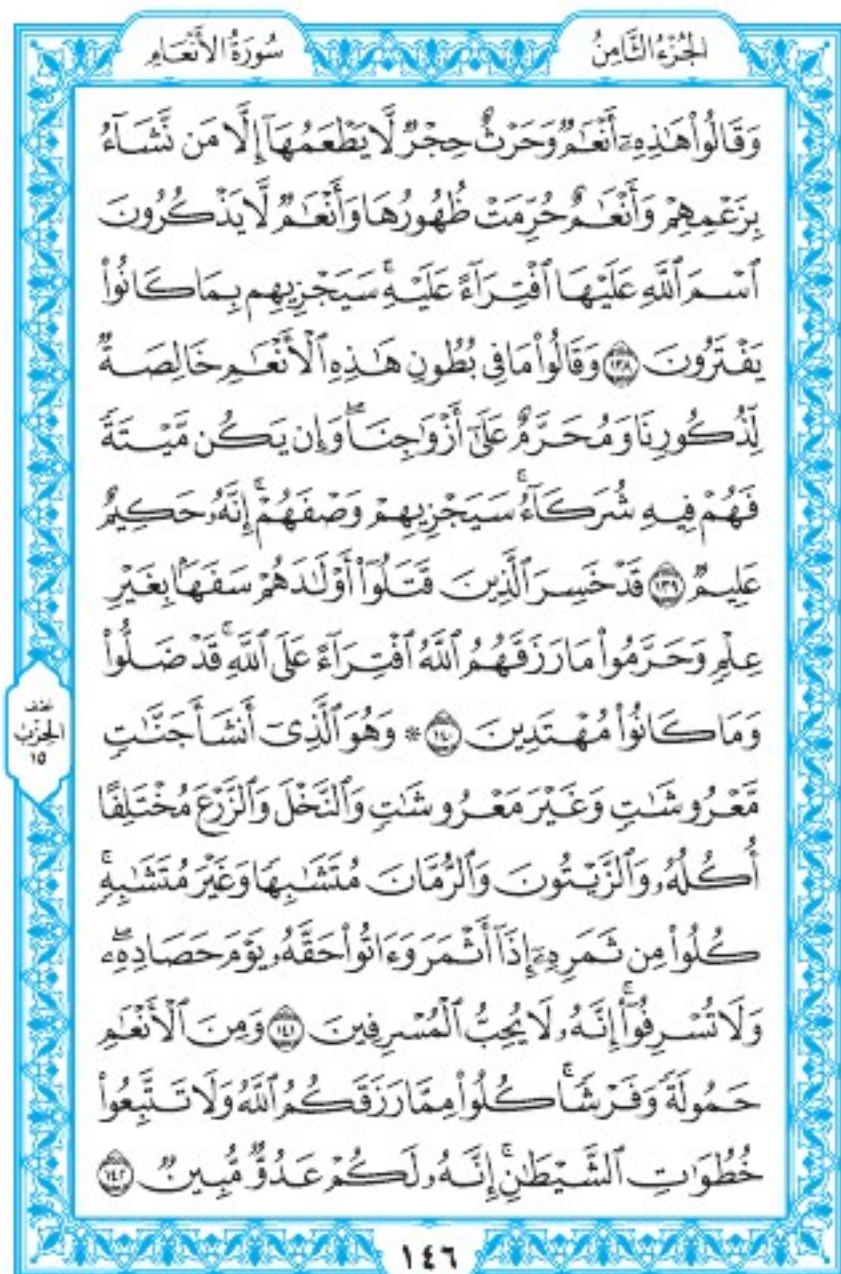 الجُزْءُ الثَّامِنُ
سُورَةُ الأَنْعَامِ
وَقَالُوا۟ هَـٰذِهِۦٓ أَنْعَـٰمٌ وَحَرْثٌ حِجْرٌ لَّا يَطْعَمُهَآ إِلَّا مَن نَّشَآءُ
بِزَعْمِهِمْ وَأَنْعَـٰمٌ حُرِّمَتْ ظُهُورُهَا وَأَنْعَـٰمٌ لَّا يَذْكُرُونَ
ٱسْمَ ٱللَّهِ عَلَيْهَا ٱفْتِرَآءً عَلَيْهِ ۚ سَيَجْزِيهِم بِمَا كَانُوا۟
يَفْتَرُونَ ١٣٨ وَقَالُوا۟ مَا فِى بُطُونِ هَـٰذِهِ ٱلْأَنْعَـٰمِ خَالِصَةٌ
لِّذُكُورِنَا وَمُحَرَّمٌ عَلَىٰٓ أَزْوَٰجِنَا ۖ وَإِن يَكُن مَّيْتَةً
فَهُمْ فِيهِ شُرَكَآءُ ۚ سَيَجْزِيهِمْ وَصْفَهُمْ ۚ إِنَّهُۥ حَكِيمٌ
عَلِيمٌ ١٣٩ قَدْ خَسِرَ ٱلَّذِينَ قَتَلُوٓا۟ أَوْلَـٰدَهُمْ سَفَهًۢا بِغَيْرِ
عِلْمٍ وَحَرَّمُوا۟ مَا رَزَقَهُمُ ٱللَّهُ ٱفْتِرَآءً عَلَى ٱللَّهِ ۚ قَدْ ضَلُّوا۟
وَمَا كَانُوا۟ مُهْتَدِينَ ١٤٠ * وَهُوَ ٱلَّذِىٓ أَنشَأَ جَنَّـٰتٍ
مَّعْرُوشَـٰتٍ وَغَيْرَ مَعْرُوشَـٰتٍ وَٱلنَّخْلَ وَٱلزَّرْعَ مُخْتَلِفًا
أُكُلُهُۥ وَٱلزَّيْتُونَ وَٱلرُّمَّانَ مُتَشَـٰبِهًا وَغَيْرَ مُتَشَـٰبِهٍ ۚ
كُلُوا۟ مِن ثَمَرِهِۦٓ إِذَآ أَثْمَرَ وَءَاتُوا۟ حَقَّهُۥ يَوْمَ حَصَادِهِۦ ۖ
وَلَا تُسْرِفُوٓا۟ ۚ إِنَّهُۥ لَا يُحِبُّ ٱلْمُسْرِفِينَ ١٤١ وَمِنَ ٱلْأَنْعَـٰمِ
حَمُولَةً وَفَرْشًا ۚ كُلُوا۟ مِمَّا رَزَقَكُمُ ٱللَّهُ وَلَا تَتَّبِعُوا۟
خُطُوَٰتِ ٱلشَّيْطَـٰنِ ۚ إِنَّهُۥ لَكُمْ عَدُوٌّ مُّبِينٌ ١٤٢
نصف
الحِزْب
١٥
١٤٦